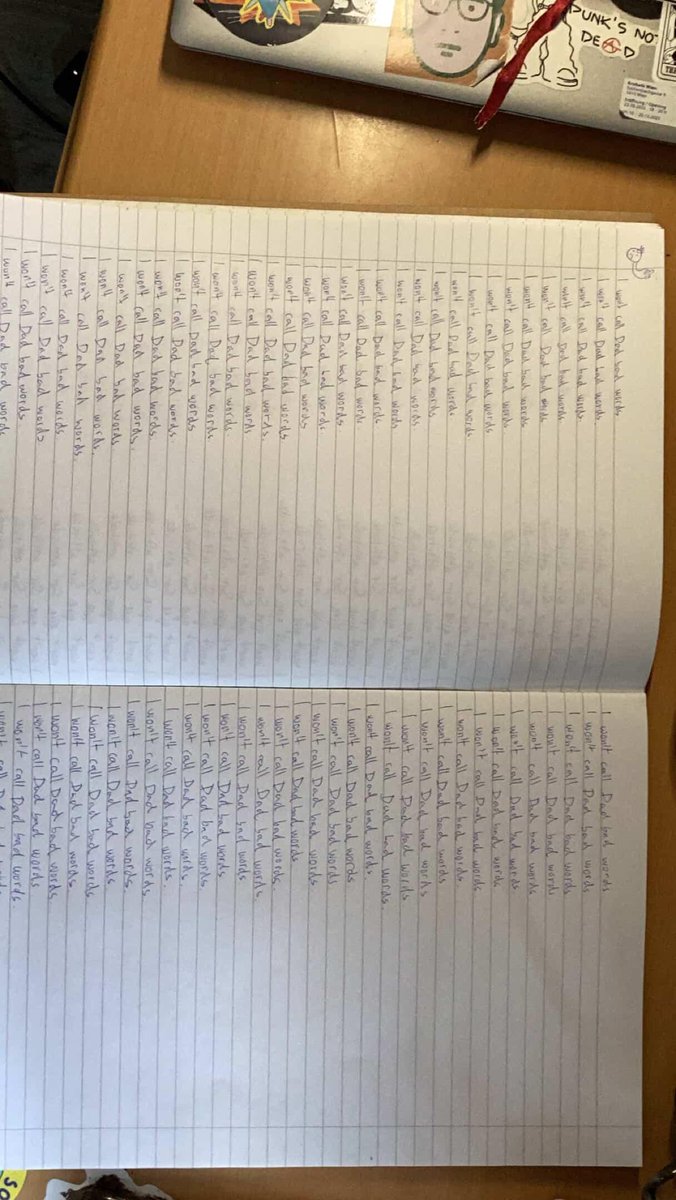 PUNK'S NO
DEAD
won't call Dad bad words
I won't call Dad bad words
I won't call Dad bad words
I won't call Dad bad words
I won't call Dad bad words
I won't call Dad bad words
I won't call Dad bad words
I won't call Dad bad words
I won't call Dad bad words
I won't call Dad bad words
I won't call Dad bad words
I won't call Dad bad words
I won't call Dad bad words
I won't call Dad bad words
I won't call Dad bad words
I won't call Dad bad words
I won't call Dad bad words
I won't call Dad bad words
I won't call Dad bad words
I won't call Dad bad words.
I won't call Dad bad words
I won't call Dad bad words
I won't call Dad bad words
I won't call Dad bad words
I won't call Dad bad words.
I won't call Dad bad words.
I won't call Dad bad words.
I won't call Dad bad words
I won't call Dad bad words.
I won't call Dad bad words.
I won't call Dad bad words
I won't call Dad bad words
I won't call Dad bad words
I won't call Dad bad words
I won't call Dad bad words
I won't call Dad bad words
I won't call Dad bad words
I won't call Dad bad words
I won't call Dad bad words
I won't call Dad bad words
I won't call Dad bad words
I won't call Dad bad words
I won't call Dad bad words
I won't call Dad bad words
I won't call Dad bad words
I won't call Dad bad words
I won't call Dad bad words.
I won't call Dad bad words.
I won't call Dad bad words
I won't call Dad bad words
I won't call Dad bad words
I won't call Dad bad words
I won't call Dad bad words
I won't call Dad bad words.
I won't call Dad bad words
I won't call Dad bad words
I won't call Dad bad words.
I won't call Dad bad words.
I won't call Dad bad words.
I won't call Dad bad words
I won't call Dad bad words
I won't call Dad bad words
I won't call Dad bad words
I won't call Dad bad words.
I won't call Dad bad words
I won't call Dad bad words
I won't call Dad bad words